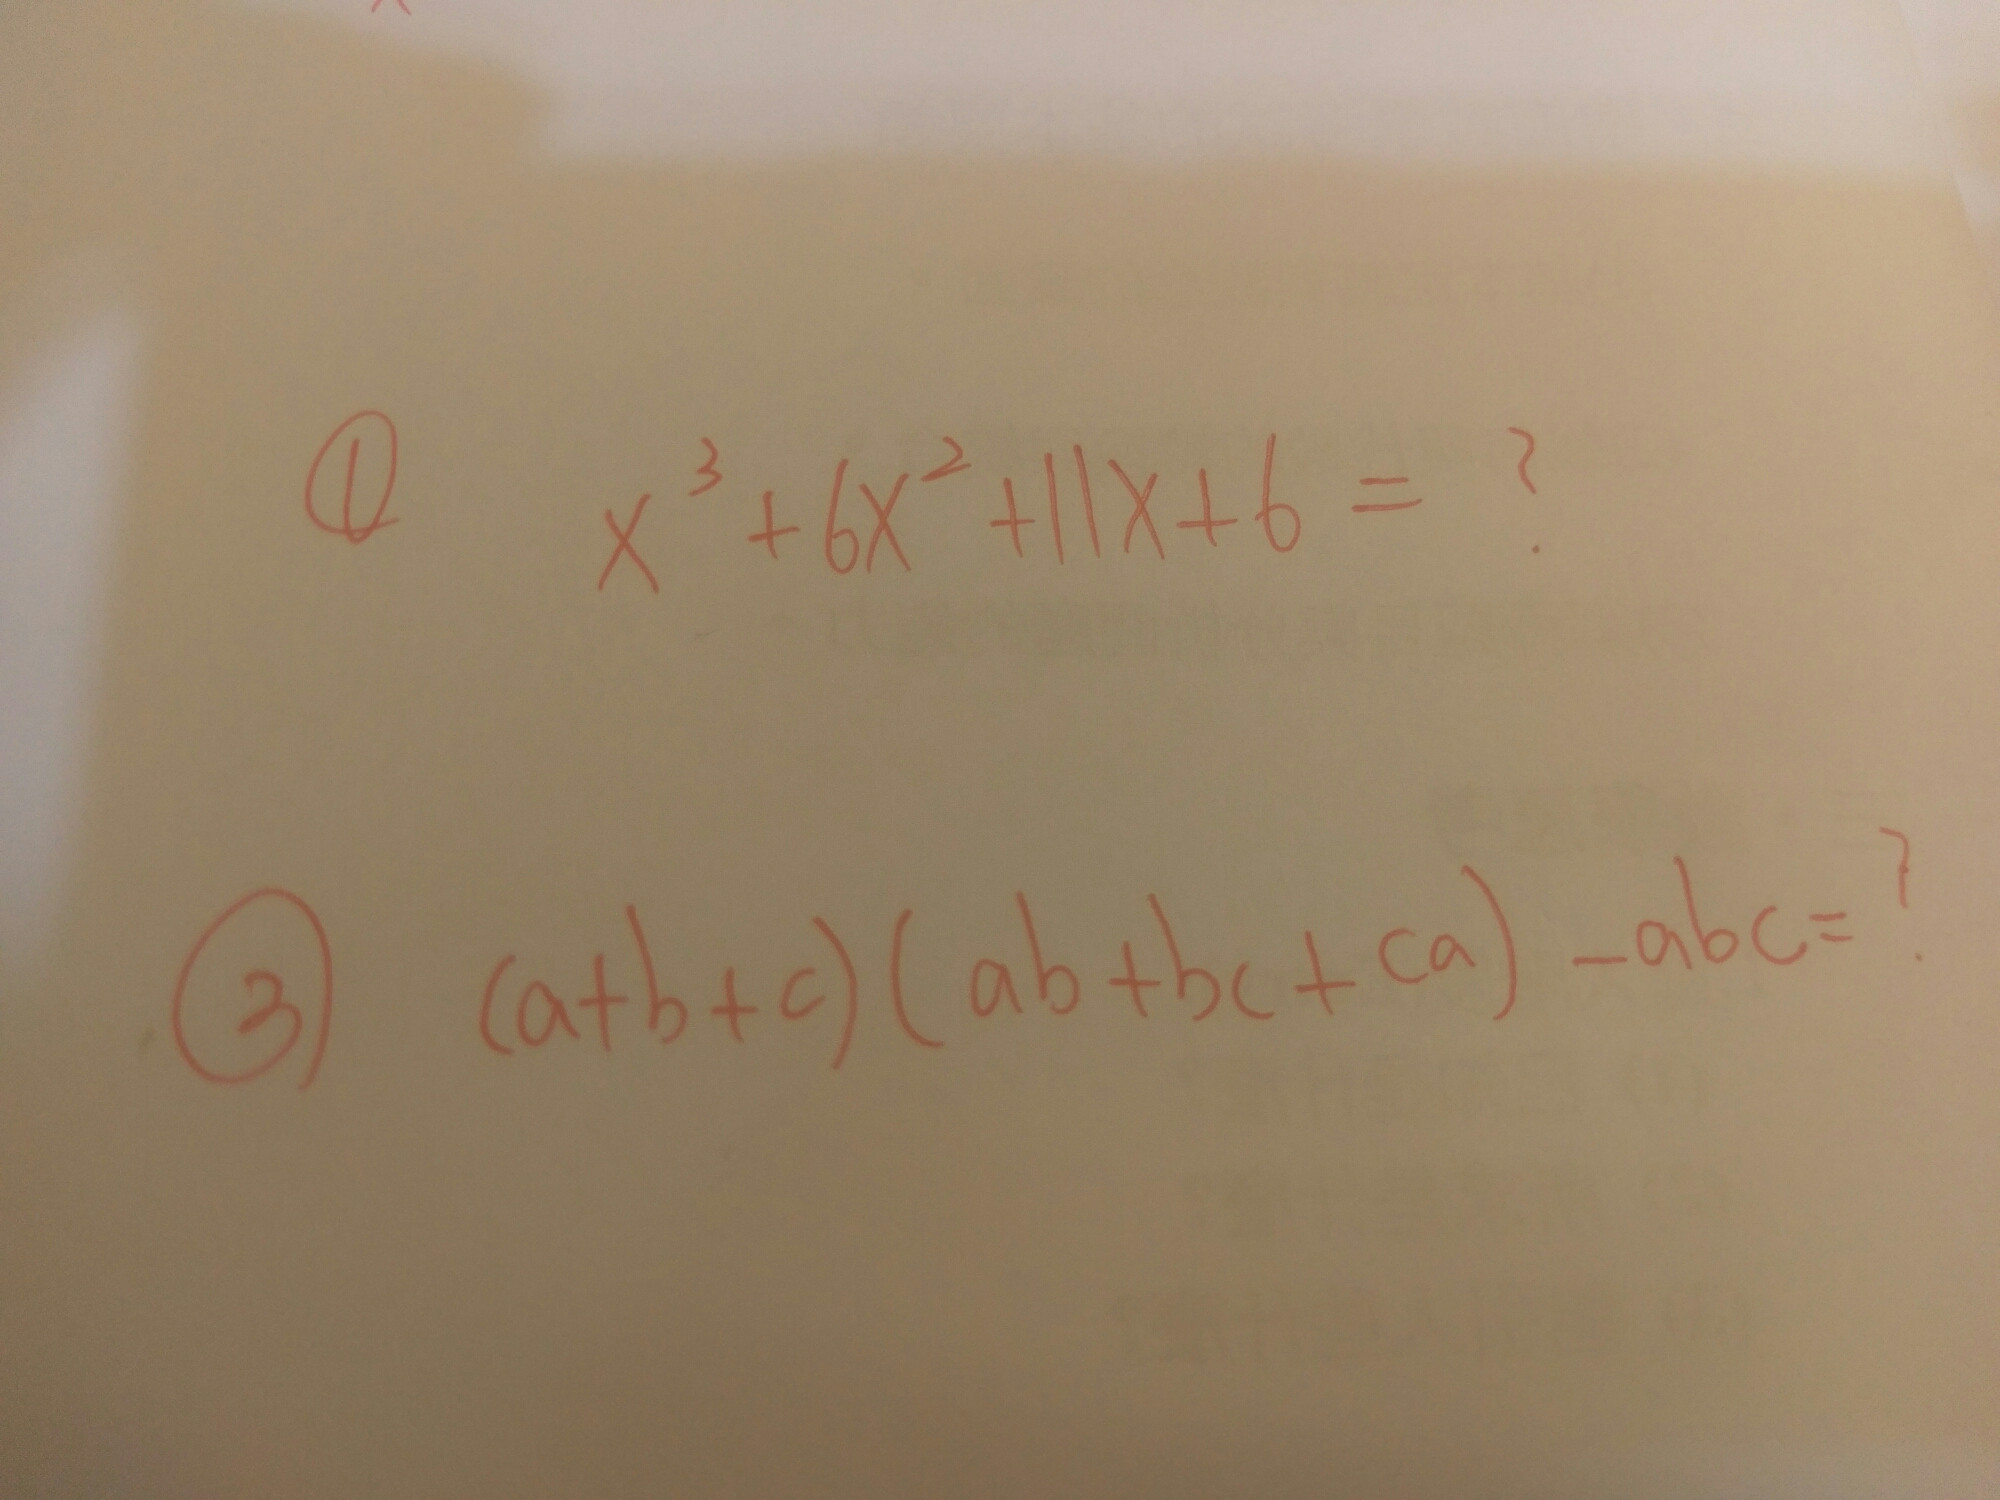 ① x³+6x²+11x+6= ?
③ (a+b+c)(ab+bc+ca)-abc=?